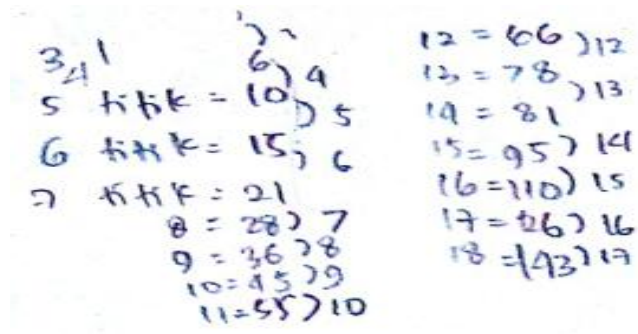 3
4
6 ) 4
5 titik = 10 ) 5
6 titik = 15 ; 6
7 titik = 21
8 = 28 ) 7
9 = 36 ) 8
10 = 45 ) 9
11 = 55 ) 10
12 = 66 ) 12
13 = 78 ) 13
14 = 81
15 = 95 ) 14
16 = 110 ) 15
17 = 126 ) 16
18 = 143 ) 17